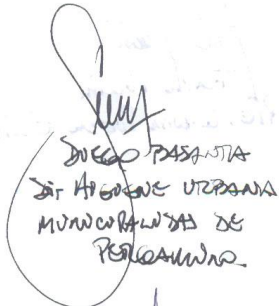 DIEGO BASANTA
DIR HIGIENE URBANA
MUNICIPALIDAD DE
PERGAMINO